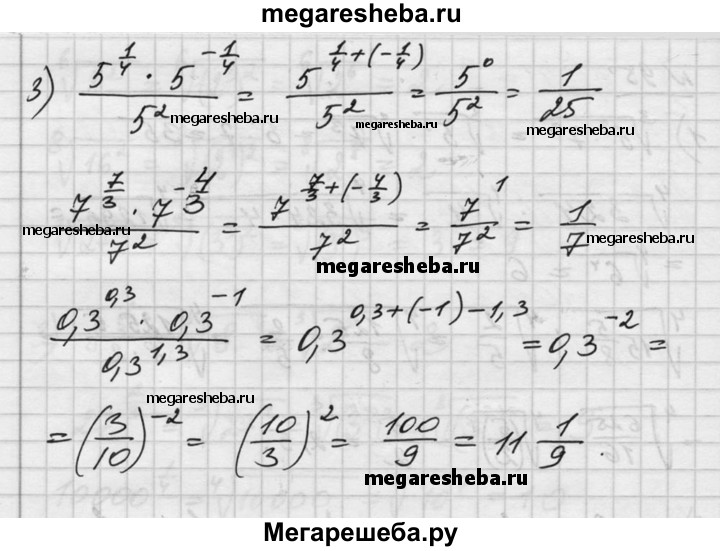 megaresheba.ru
3) \frac{5^{\frac{1}{4}} \cdot 5^{-\frac{1}{4}}}{5^2} = \frac{5^{\frac{1}{4}+(-\frac{1}{4})}}{5^2} = \frac{5^0}{5^2} = \frac{1}{25}
megaresheba.ru megaresheba.ru megaresheba.ru
\frac{7^{\frac{7}{3}} \cdot 7^{-\frac{4}{3}}}{7^2} = \frac{7^{\frac{7}{3}+(-\frac{4}{3})}}{7^2} = \frac{7^1}{7^2} = \frac{1}{7}
megaresheba.ru megaresheba.ru
megaresheba.ru
\frac{0,3^{0,3} \cdot 0,3^{-1}}{0,3^{1,3}} = 0,3^{0,3+(-1)-1,3} = 0,3^{-2} =
megaresheba.ru
= \left(\frac{3}{10}\right)^{-2} = \left(\frac{10}{3}\right)^2 = \frac{100}{9} = 11\frac{1}{9}.
megaresheba.ru
Мегарешеба.ру